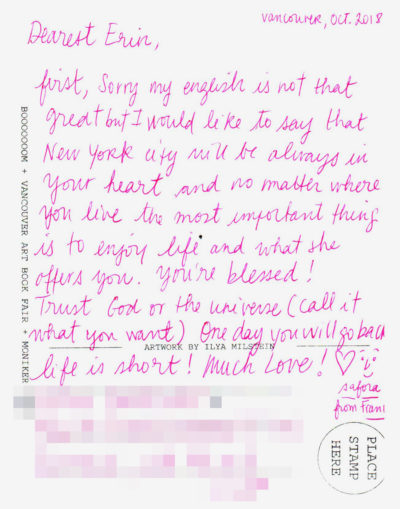 Vancouver, Oct. 2018
Dearest Erin,
first, Sorry my english is not that
great but I would like to say that
New York city will be always in
your heart and no matter where
you live the most important thing
is to enjoy life and what she
offers you. You're blessed!
Trust God or the universe (call it
what you want) One day you will go back
ARTWORK BY ILYA MILSTEIN
life is short! Much Love!
safora
from Frani
BOOOOOOOM + VANCOUVER ART BOOK FAIR + MONIKER
PLACE
STAMP
HERE